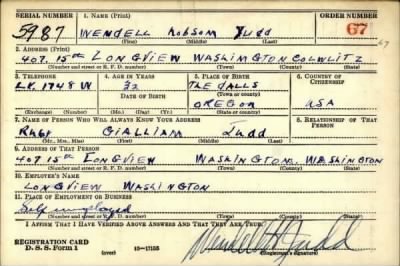 SERIAL NUMBER 1. NAME (Print) ORDER NUMBER
5987 WENDELL ROBSOM JUDD 67
(First) (Middle) (Last)
2. ADDRESS (Print)
407 15th LONGVIEW WASHINGTON COLWLITZ
(Number and street or R. F. D. number) (Town) (County) (State)
3. TELEPHONE 4. AGE IN YEARS 5. PLACE OF BIRTH 6. COUNTRY OF CITIZENSHIP
LK. 1748 W 32 THE DALLS
DATE OF BIRTH (Town or county)
OREGON USA
(Exchange) (Number) (Mo.) (Day) (Yr.) (State or country)
7. NAME OF PERSON WHO WILL ALWAYS KNOW YOUR ADDRESS 8. RELATIONSHIP OF THAT PERSON
RUBY GIALLIAM Judd
(Mr., Mrs., Miss) (First) (Middle) (Last)
9. ADDRESS OF THAT PERSON
407 15th LONGVIEW WASHINGTON, WASHINGTON
(Number and street or R. F. D. number) (Town) (County) (State)
10. EMPLOYER'S NAME
LONGVIEW WASHINGTON
11. PLACE OF EMPLOYMENT OR BUSINESS
Self employed
(Number and street or R. F. D. number) (Town) (County) (State)
I AFFIRM THAT I HAVE VERIFIED ABOVE ANSWERS AND THAT THEY ARE TRUE.
REGISTRATION CARD
D. S. S. Form 1 16-17105 Wendell R Judd
(Registrant's signature)